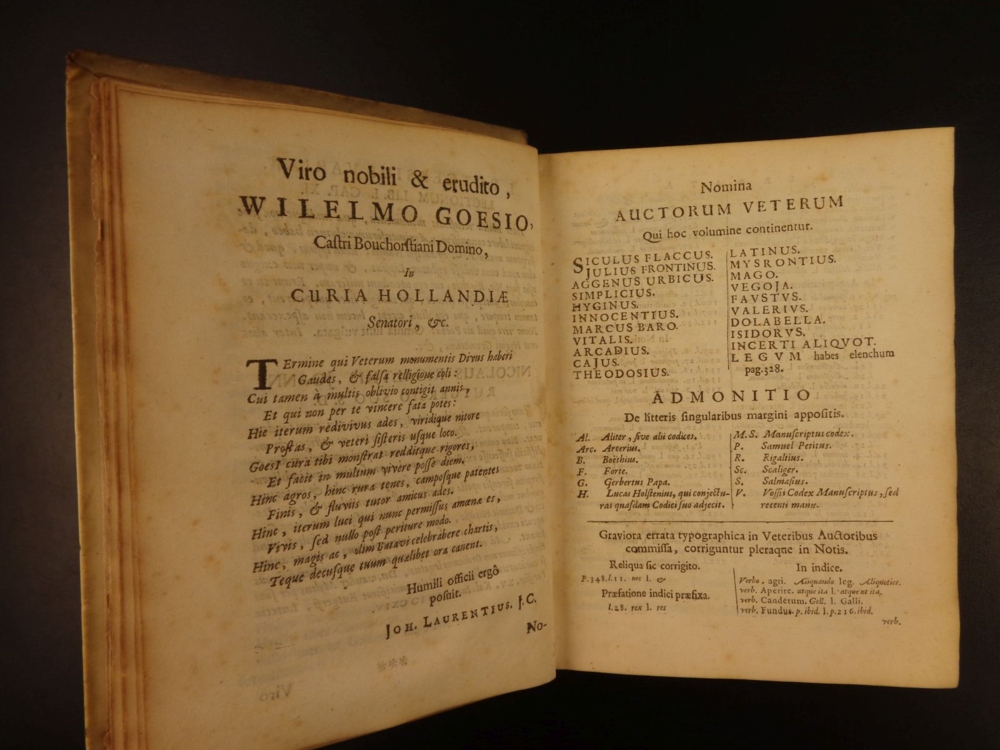 Viro nobili & erudito,
WILELMO GOESIO,
Castri Bouchorstiani Domino,
In
CURIA HOLLANDIÆ
Senatori, &c.
TErmine qui Veterum monumentis Divus haberi
Gaudes, & falsa relligione coli:
Cui tamen à multis oblivio contigit annis,
Et qui non per te vincere fata potes:
Hic iterum redivivus ades, viridique nitore
Prostas, & veteri sisteris usque loco.
GoesI cura tibi monstrat redditque rigores,
Et facit in multum vivere posse diem.
Hinc agros, hinc rura tenes, camposque patentes
Finis, & fluviis tutor amicus ades.
Hinc, iterum luci qui nunc permissus amœnæ es,
Vivis, sed nullo post periture modo.
Hinc, magis ac, olim Batavi celebrabere chartis,
Teque decusque tuum quælibet ora canent.
Humili officii ergô
posuit.
JOH. LAURENTIUS. J.C.
No-
Nomina
AUCTORUM VETERUM
Qui hoc volumine continentur.
SICULUS FLACCUS.
JULIUS FRONTINUS.
AGGENUS URBICUS.
SIMPLICIUS.
HYGINUS.
INNOCENTIUS.
MARCUS BARO.
VITALIS.
ARCADIUS.
CAJUS.
THEODOSIUS.
LATINUS.
MYSRONTIUS.
MAGO.
VEGOJA.
FAVSTVS.
VALERIVS.
DOLABELLA.
ISIDORVS.
INCERTI ALIQVOT.
LEGVM habes elenchum
pag.328.
ADMONITIO
De litteris singularibus margini appositis.
Al. Aliter, sive alii codices.
Arc. Arcerius.
B. Boëthius.
F. Forte.
G. Gerbertus Papa.
H. Lucas Holstenius, qui conjectu-
ras quasdam Codici suo adjecit.
M.S. Manuscriptus codex.
P. Samuel Petitus.
R. Rigaltius.
Sc. Scaliger.
S. Salmasius.
V. Vossii Codex Manuscriptus, sed
recenti manu.
Graviora errata typographica in Veteribus Auctoribus
commissa, corriguntur pleraque in Notis.
Reliqua sic corrigito.
P.348.l.11. nec l. &
Præfatione indici præfixa.
l.28. ren l. res
In indice.
Verbo, agri. Aliquando leg. Aliquoties.
verb. Aperire. atque ita l. atque ut ita.
verb. Canderum. Gall. l. Galli.
verb. Fundus. p. ibid. l. p.216. ibid.
verb.